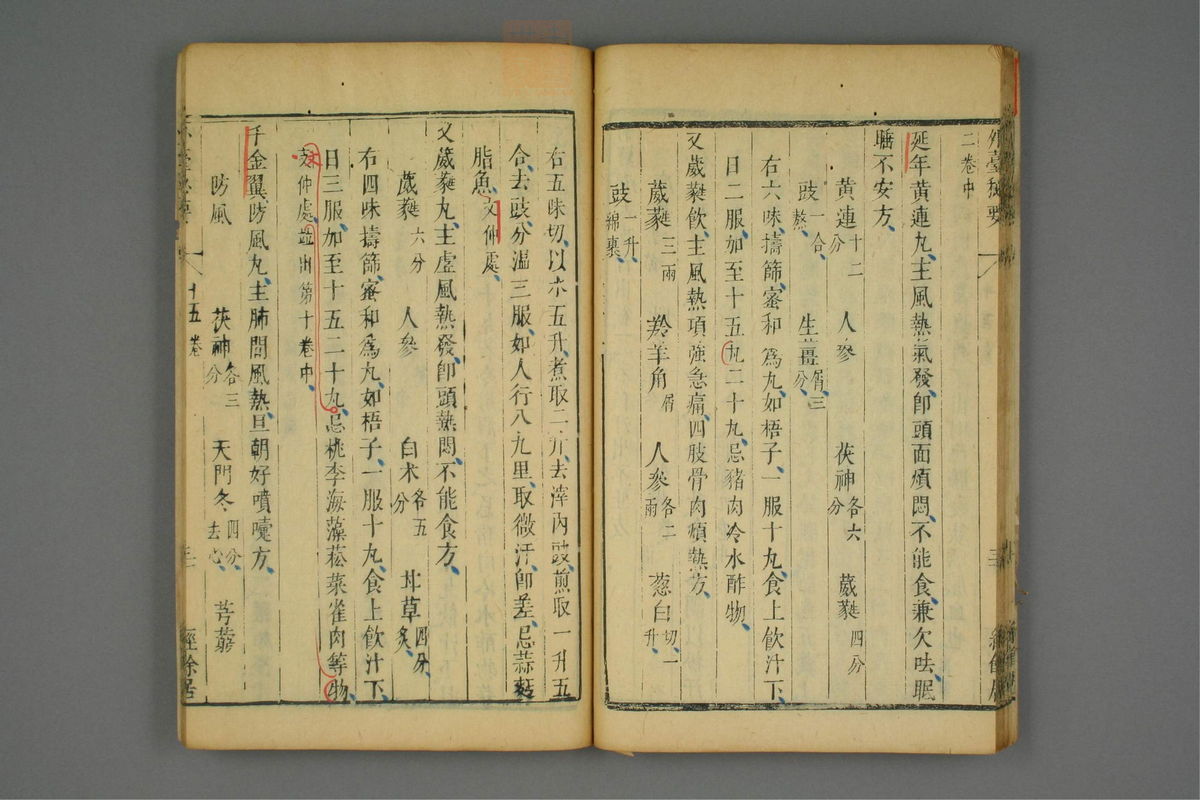 外臺秘要
二卷中
延年黃連丸主風熱氣發卽頭面煩悶不能食兼欠呿眠
睡不安方
黃連十二分 人參 茯神各六分 葳蕤四分
豉一合熬 生薑屑三分
右六味擣篩蜜和爲丸如梧子一服十丸食上飮汁下
日二服加至十五丸二十丸忌豬肉冷水酢物
又葳蕤飮主風熱項強急痛四肢骨肉煩熱方
葳蕤三兩 羚羊角屑 人參各二兩 葱白切一升
豉一升綿裹
右五味切以水五升煮取二升去滓內豉煎取一升五
合去豉分溫三服如人行八九里取微汗卽差忌蒜麪
脂魚文仲處
又葳蕤丸主虛風熱發卽頭熱悶不能食方
葳蕤六分 人參 白朮各五分 甘草四分炙
右四味擣篩蜜和爲丸如梧子一服十丸食上飮汁下
日三服加至十五二十丸忌桃李海藻菘菜雀肉等物
文仲處並出第十卷中
千金翼防風丸主肺間風熱旦朝好噴嚔方
防風 茯神各三分 天門冬四分去心 芎藭
十五卷
經餘居